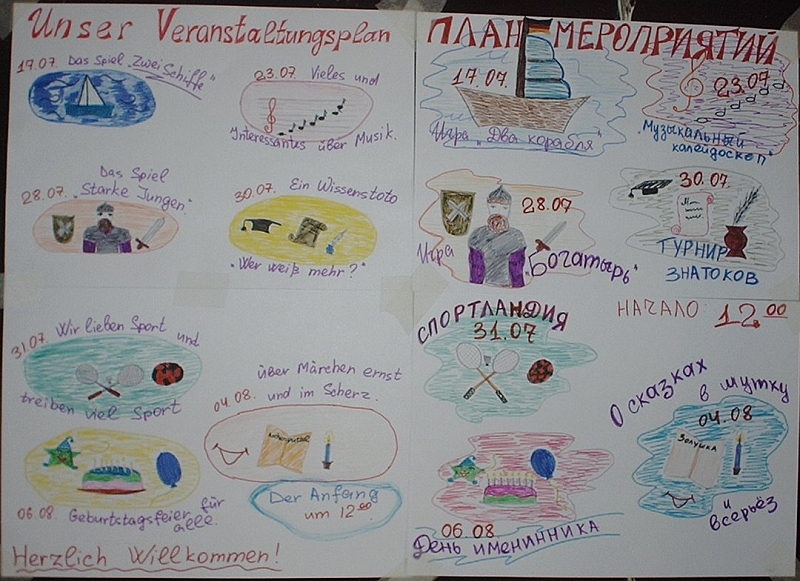 Unser Veranstaltungsplan
17.07. Das Spiel „Zwei Schiffe"
23.07. Vieles und
Interessantes über Musik.
Das Spiel
28.07. „Starke Jungen."
30.07. Ein Wissenstoto
„Wer weiß mehr?"
31.07. Wir lieben Sport und
treiben viel Sport
über Märchen ernst
04.08. und im Scherz.
06.08. Geburtstagsfeier für
alle.
Der Anfang
um 12⁰⁰.
Herzlich Willkommen!
ПЛАН МЕРОПРИЯТИЙ
17.07.
Игра „Два корабля"
23.07
„Музыкальный
калейдоскоп"
28.07
Игра „Богатырь"
30.07.
ТУРНИР
ЗНАТОКОВ
СПОРТЛАНДИЯ
31.07
НАЧАЛО: 12.⁰⁰
О сказках в шутку
04.08
Золушка
и
всерьёз
06.08.
День именинника